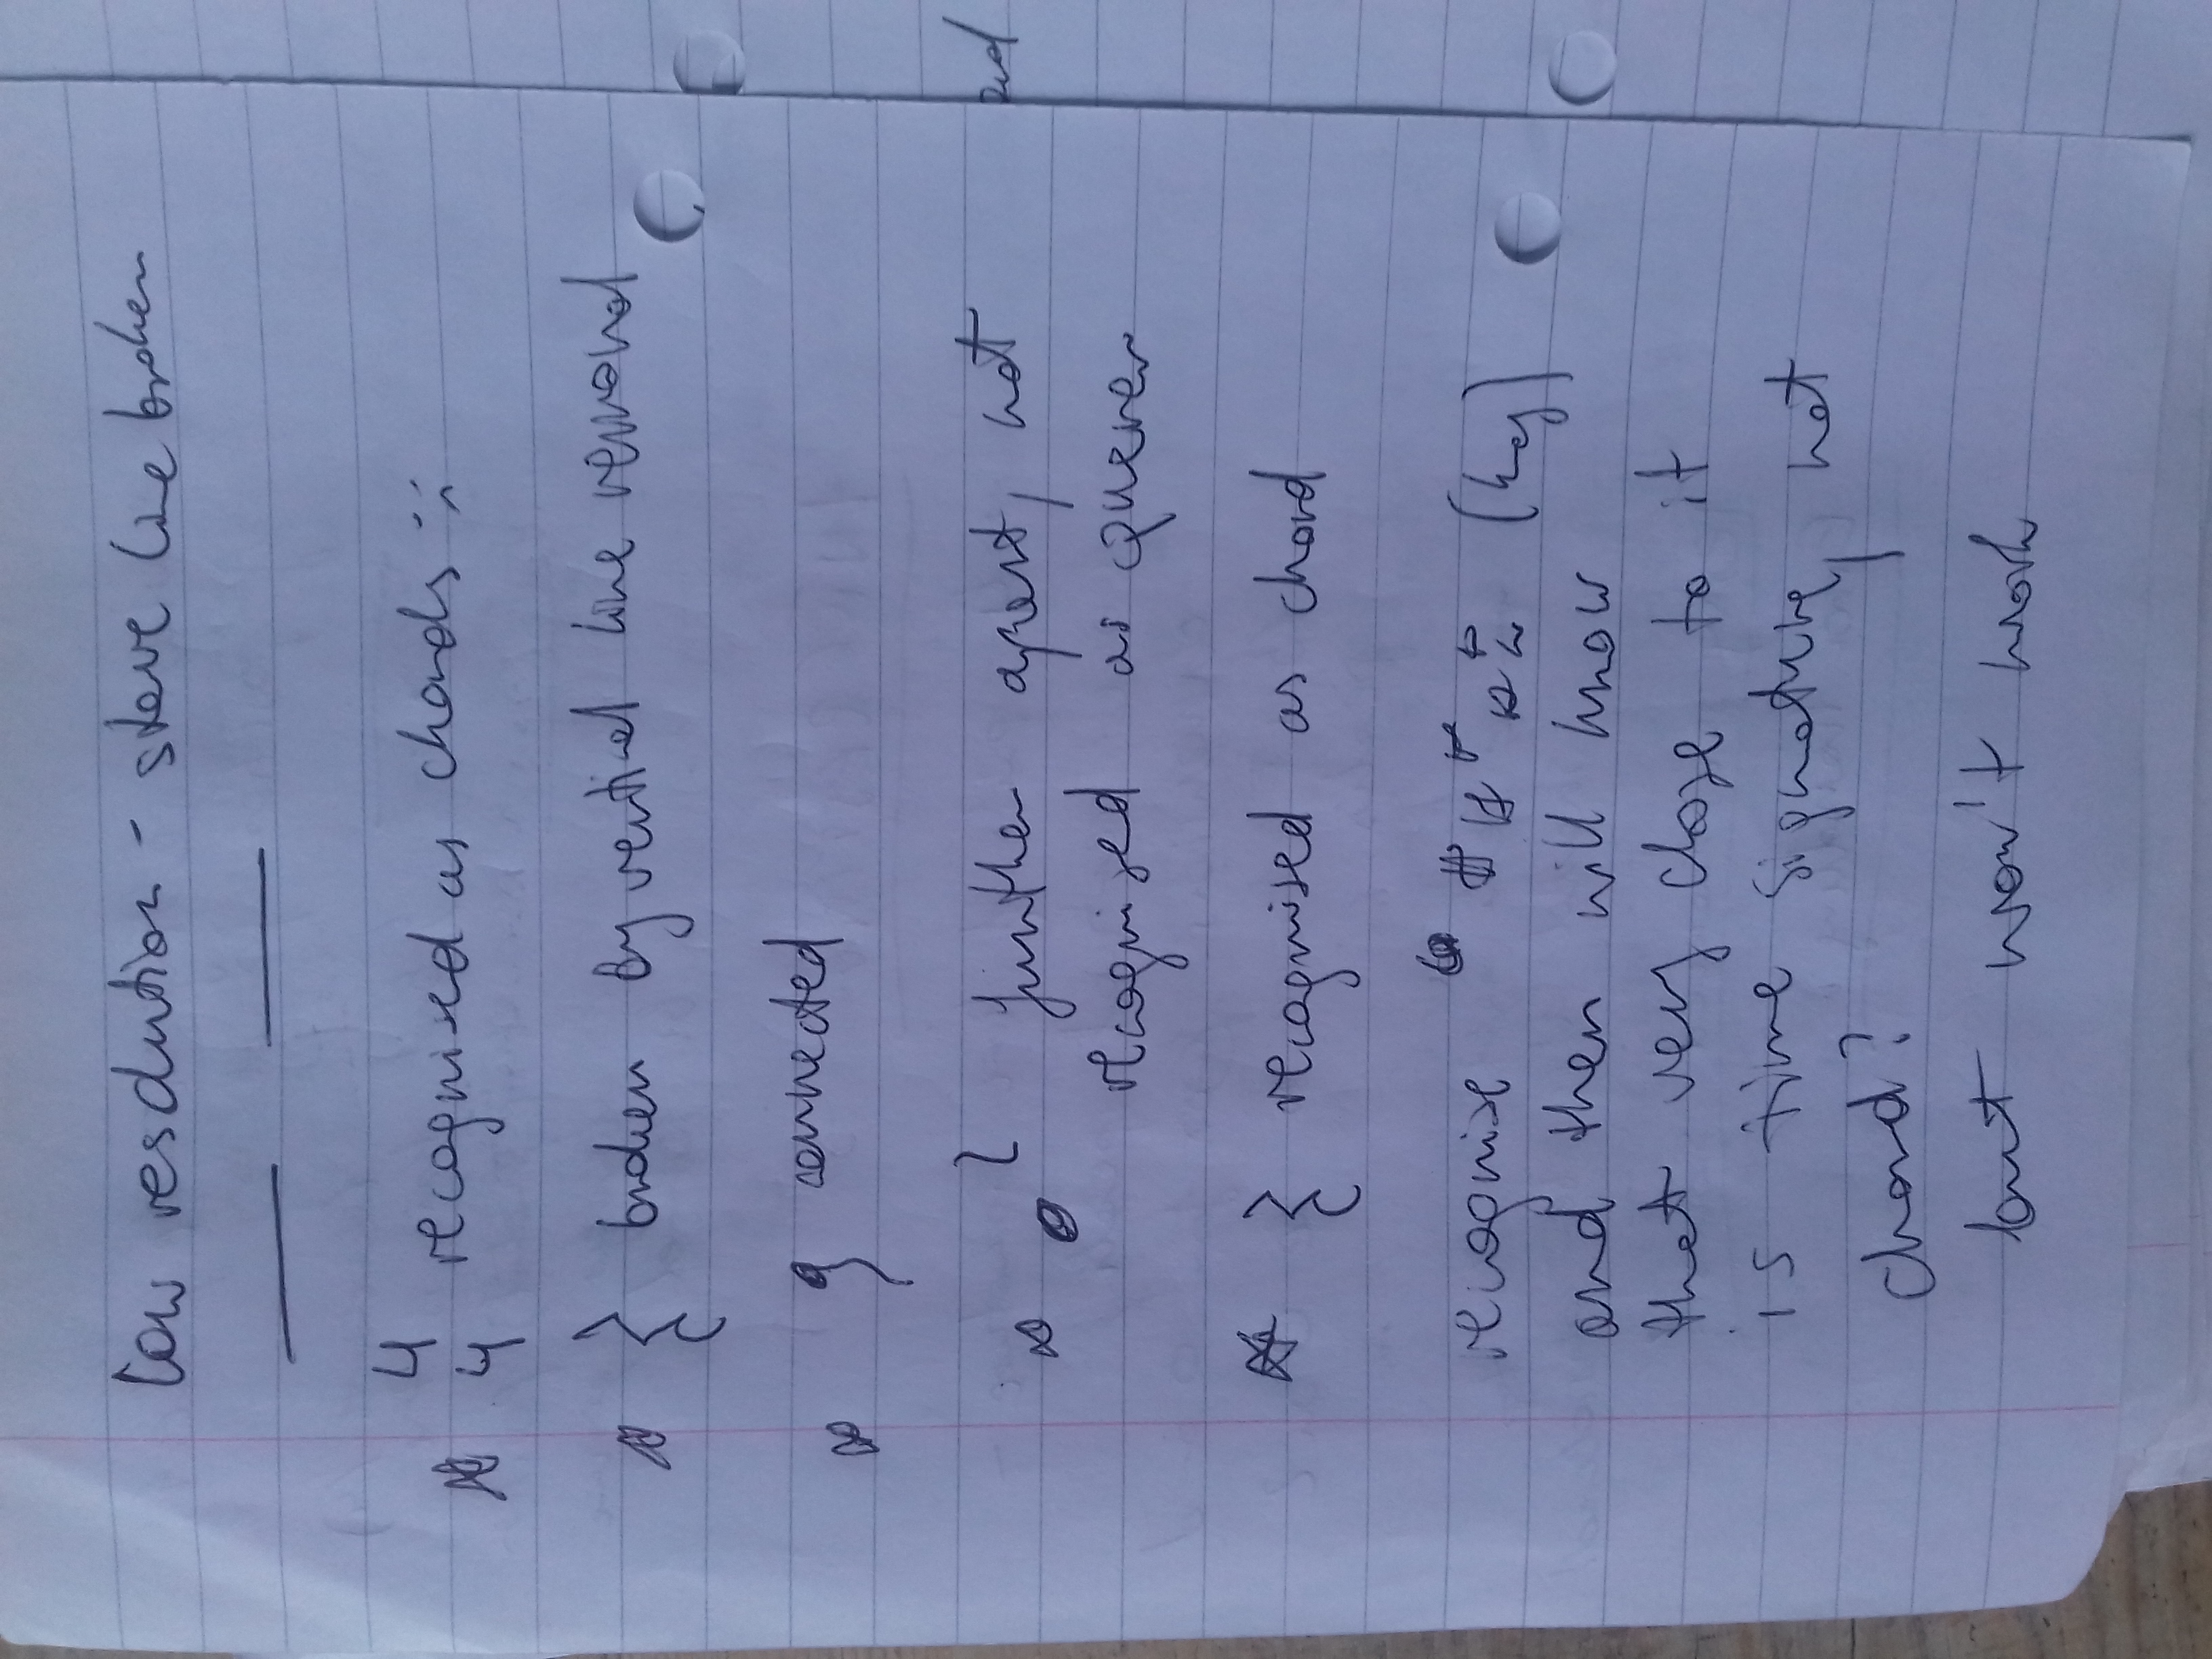 low resolution - stave line broken
4
4 recognised as chords :(
broken by vertical line removal
connected
further apart, not
recognised as quaver
recognised as chord
recognise # (key)
and then will know
that very close to it
is time signature, not
chord?
but won't work